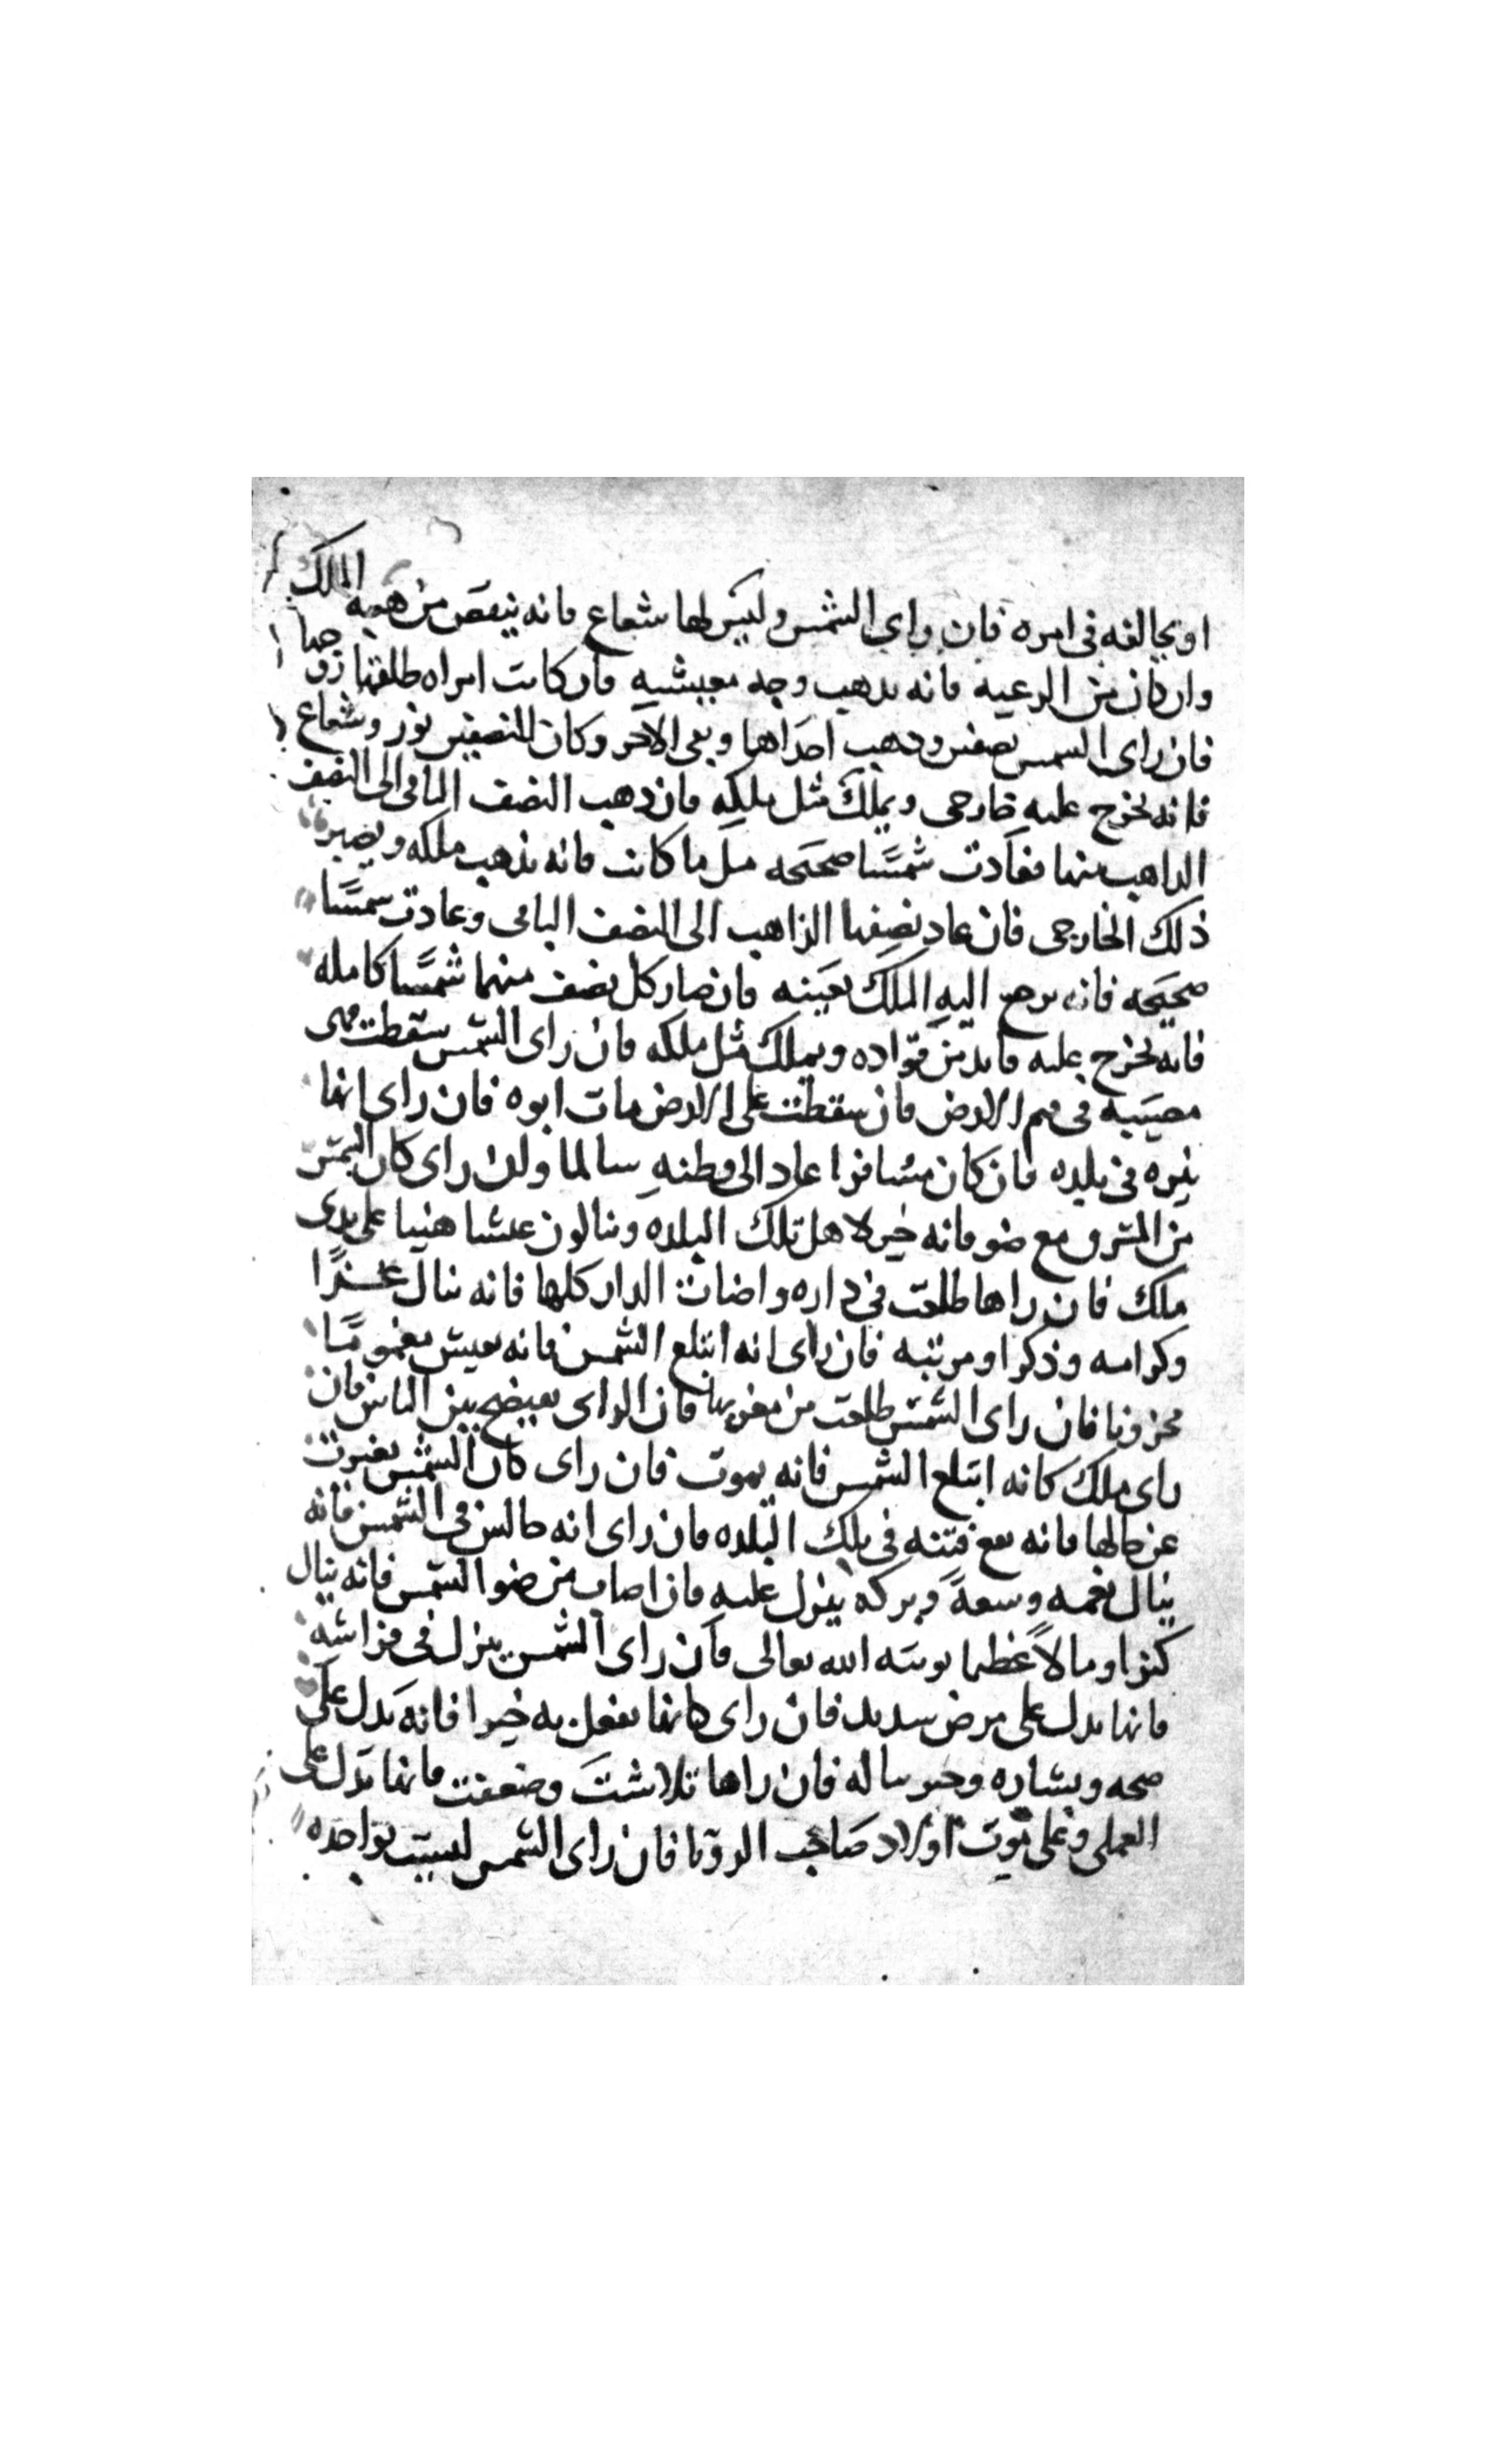 او يخالفه في امره فان راي الشمس وليس لها شعاع فانه ينقص من هيبه الملك
وان كان من الرعيه فانه يذهب وجه معيشته فان كانت امراه طلقها زوجها
فان راى الشمس نصفين وذهب احداهما وبقى الاخر وكان للنصفين نور وشعاع
فانه يخرج عليه خارجى ويملك مثل ملكه فان ذهب النصف الباقى الى النصف
الذاهب منها فعادت شمسًا صحيحه مثل ما كانت فانه يذهب ملكه ويصير
ذلك الخارجى فان عاد نصفها الذاهب الى النصف الباقى وعادت شمسًا
صحيحه فانه يرجع اليه الملك بعينه فان صار كل نصف منهما شمسًا كامله
فانه يخرج عليه قايد من قواده ويملك مثل ملكه فان راى الشمس سقطت فهى
مصيبه فى الارض فان سقطت على الارض مات ابوه فان راى انها
نيره فى بلده فان كان مسافرا عاد الى وطنه سالما وان راى كان الشمس
من المشرق مع ضو فانه خير لاهل تلك البلده وينالون عيشا هنيا على يدى
ملك فان راها طلعت فى داره واضات الدار كلها فانه ينال عزًا
وكرامه وذكرا ومرتبه فان راى انه ابتلع الشمس فانه يعيش مغمومًا
محزونا فان راى الشمس طلعت من مغربها فان الراى يفتضح بين الناس فان
راى ملك كانه ابتلع الشمس فانه يموت فان راى كان الشمس تغيرت
عن حالها فانه يقع فتنه فى تلك البلده فان راى انه جالس فى الشمس فانه
ينال نعمه وسعةً وبركه ينزل عليه فان اصاب من ضو الشمس فانه ينال
كنزا ومالاً عظيما يوتيه الله تعالى فان راى الشمس ينزل فى فراشه
فانها تدل على مرض شديد فان راى كانها تفعل به خيرا فانه يدل على
صحه وبشاره وخير يناله فان راها تلاشت وضعفت فانها تدل على
العمى وعلى موت اولاد صاحب الرويا فان راى الشمس ليست بواحده